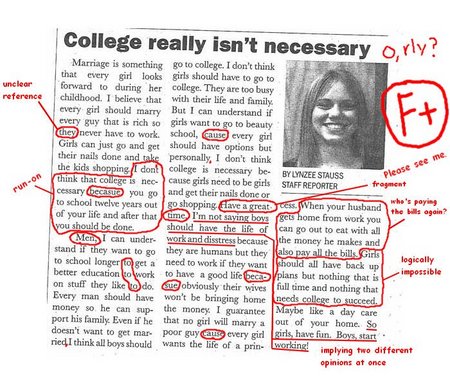 College really isn't necessary
o, rly?
F+
Please see me.
unclear
reference
run-on
Marriage is something
that every girl looks
forward to during her
childhood. I believe that
every girl should marry
every guy that is rich so
they never have to work.
Girls can just go and get
their nails done and take
the kids shopping. I don't
think that college is nec-
cessary becasue you go
to school twelve years out
of your life and after that
you should be done.
Men, I can under-
stand if they want to go
to school longer to get a
better education to work
on stuff they like to do.
Every man should have
money so he can sup-
port his family. Even if he
doesn't want to get mar-
ried, I think all boys should
go to college. I don't think
girls should have to go to
college. They are too busy
with their life and family.
But I can understand if
girls want to go to beauty
school, cause every girl
should have options but
personally, I don't think
college is necessary be-
cause girls need to be girls
and get their nails done or
go shopping. Have a great
time. I'm not saying boys
should have the life of
work and distress because
they are humans but they
need to work if they want
to have a good life beca-
sue obviously their wives
won't be bringing home
the money. I guarantee
that no girl will marry a
poor guy cause every girl
wants the life of a prin-
BY LYNZEE STAUSS
STAFF REPORTER
fragment
cess. When your husband
gets home from work you
can go out to eat with all
the money he makes and
also pay all the bills. Girls
should all have back up
plans but nothing that is
full time and nothing that
needs college to succeed.
Maybe like a day care
out of your home. So
girls, have fun. Boys, start
working!
who's paying
the bills again?
logically
impossible
implying two different
opinions at once